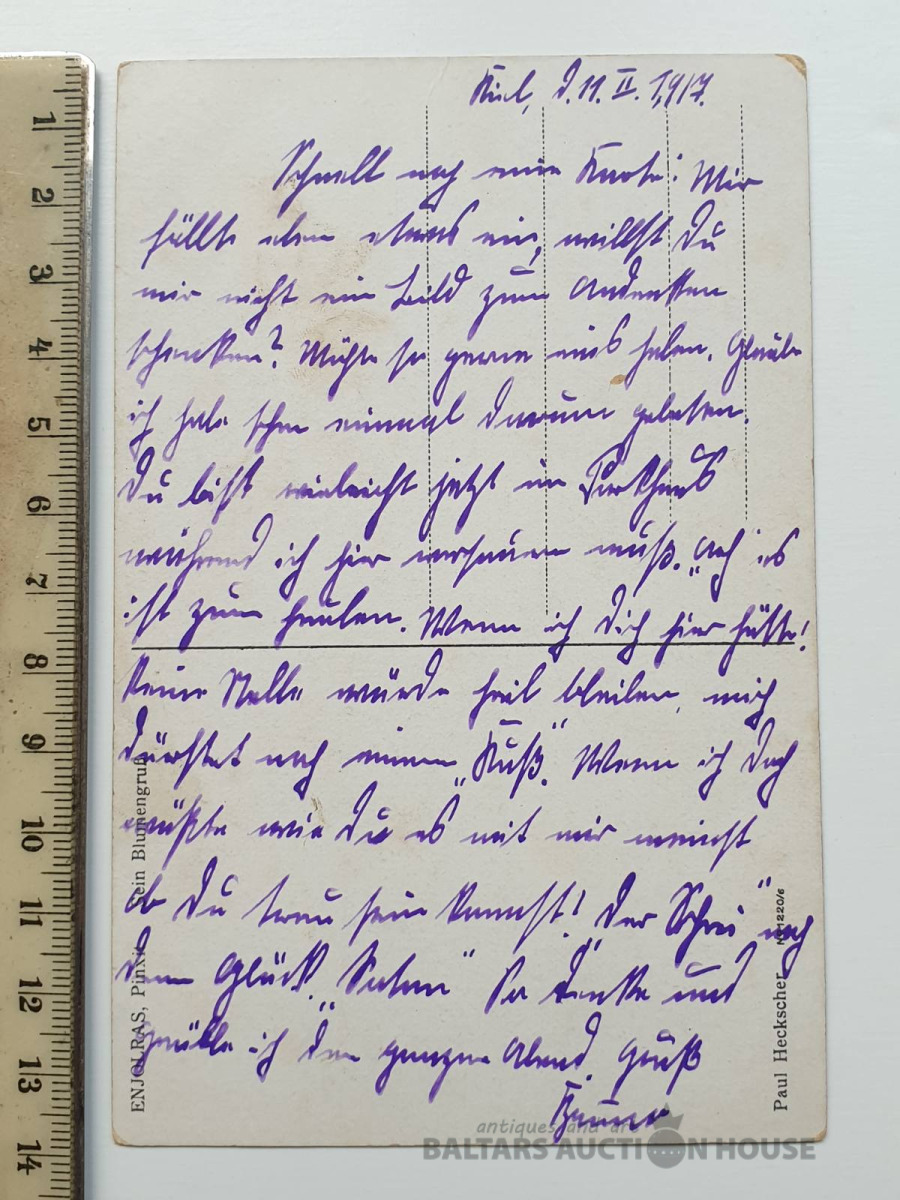 Kiel, d. 11. II. 1917.
Schnell noch eine Karte! Mir
fällt eben etwas ein, willst Du
mir nicht ein Bild zum Andenken
schenken? Möchte so gerne eins haben. Glaube
ich habe schon einmal darum gebeten.
Du bist vieleicht jetzt im Parkhaus
während ich hier versauern muß. „Ach" es
ist zum heulen. Wenn ich Dich hier hätte!
keine Stelle würde heil bleiben, mich
dürstet nach einem „Kuß". Wenn ich doch
wüßte wie Du es mit mir meinst
ob Du treu sein kannst! „Der Schrei" nach
dem Glück. „Satan" So denke und
ich den ganzen Abend. Gruß
ENJOLRAS, Pinxit
Sein Blumengruß
Paul Heckscher
1220/6
antiques and art
BALTARS AUCTION HOUSE
1
2
3
4
5
6
7
8
9
10
11
12
13
14